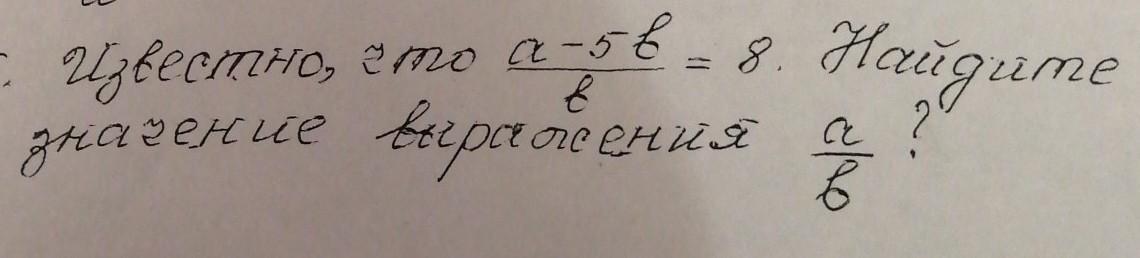 Известно, что \frac{a-5b}{b} = 8. Найдите
значение выражения \frac{a}{b} ?